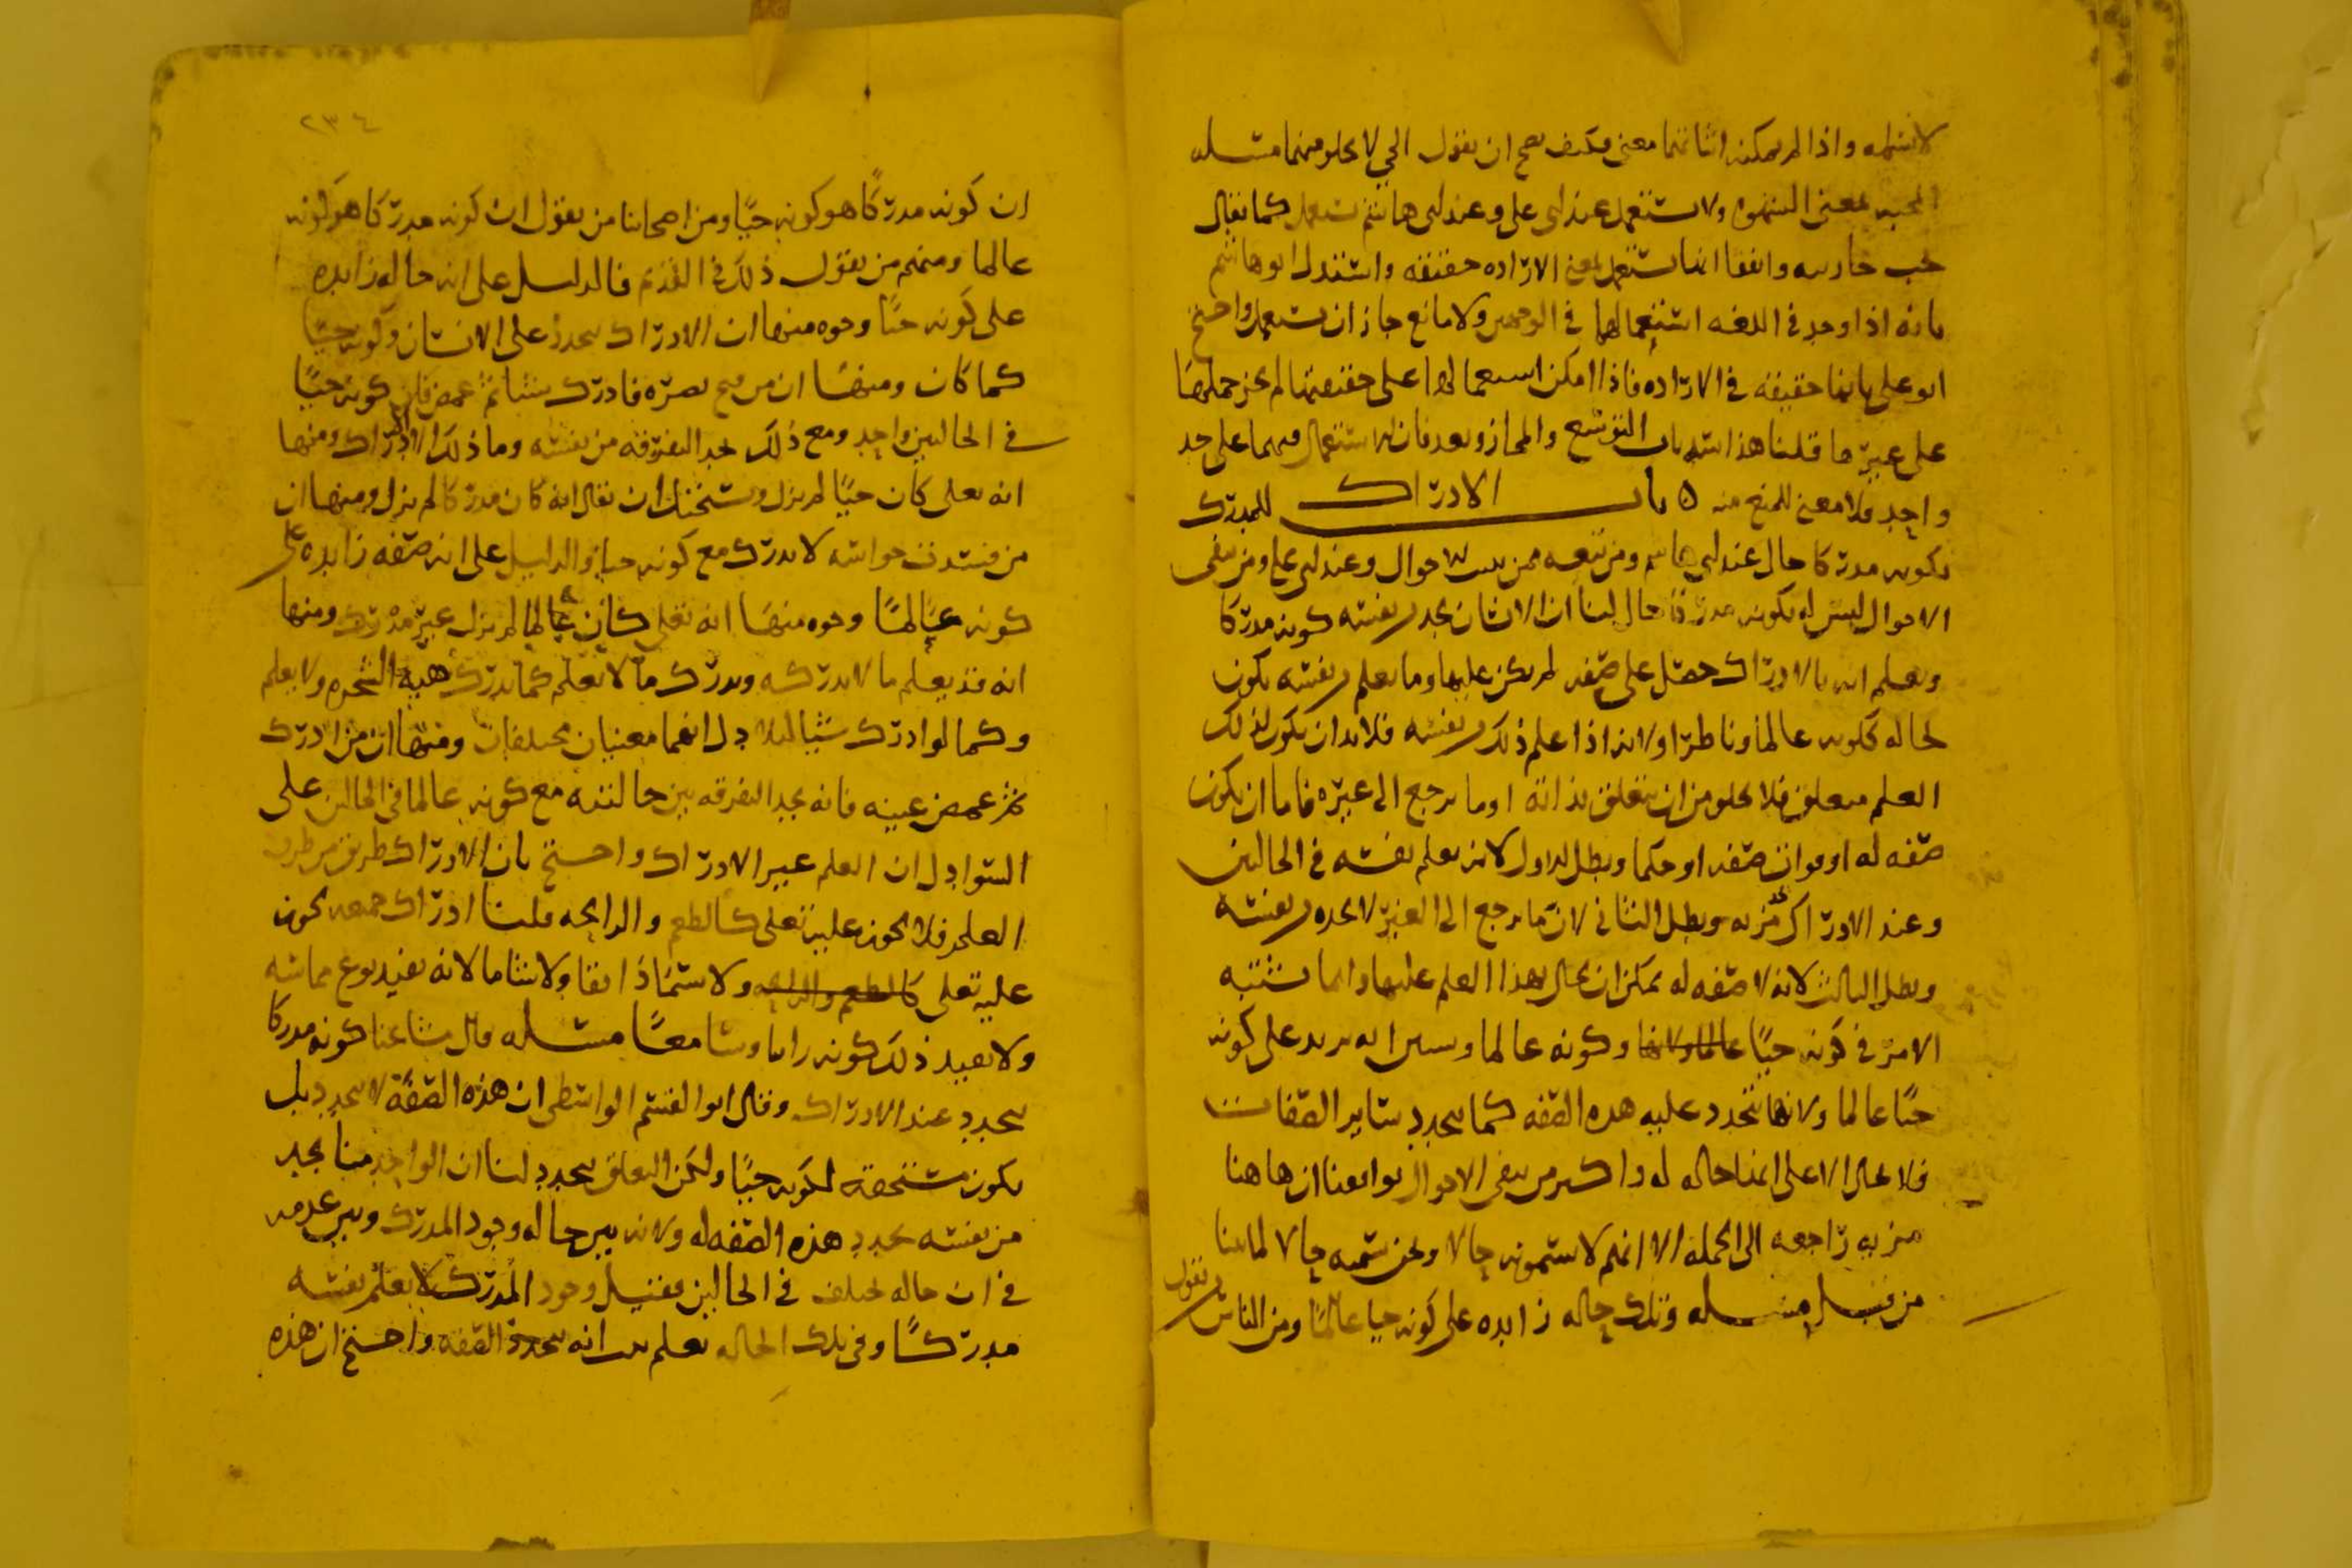 لانتهله واذا لم يمكنه اثباتهما معنى فكيف يصح ان يقول الحي لا يخلو منهما مسله
المحبه بمعنى الشهوه ولا ستعمل عند ابي علي وعند ابي هاشم ستعمل كما يقال
يحب جاريته واتفقا انها تستعمل بمعنى الاراده حقيقه واستدل ابو هاشم
بانه اذا وجد في اللغه استعمالها في الوجهين ولا مانع جاز ان ستعمل واحتج
ابو علي بانها حقيقه في الاراده فاذا امكن استعمالها على حقيقتها لم يجز حملها
على غير ما قلنا هذا اشبه باب التوسع والمجاز وبعد فان الاستعمال فيهما على حد
واحد فلا معنى للمنع منه ٥ باب الادراك للمدرك
بكونه مدركا حال عند ابي هاشم ومن تبعه ممن يثبت الاحوال وعند ابي علي ومن ينفي
الاحوال ليس له بكونه مدركا حال لنا ان الانسان يجد من نفسه كونه مدركا
ويعلم انه بالادراك حصل على صفه لم يكن عليها وما يعلم من نفسه يكون
لحاله ككونه عالما وناظرا ولانه اذا علم ذلك من نفسه فلا بد ان يكون لذلك
العلم متعلق فلا يخلو من ان يتعلق بذاته او ما يرجع الى غيره فاما ان يكون
صفه له او فوات صفه او حكما وبطل الاول لانه يعلم نفسه في الحالين
وعند الادراك مزيه وبطل الثاني لان ما يرجع الى الغير لا يجده من نفسه
وبطل الثالث لانه لا صفه له يمكن ان يحال بهذا العلم عليها وانما يشتبه
الامر في كونه حيا وكونه عالما وسنبين انه يزيد على كونه
حيا عالما ولانها تتجدد عليه هذه الصفه كما يتجدد ساير الصفات
فلا يحال الا على انها حاله له واكثر من ينفي الاحوال يوافقنا ان هاهنا
مزيه راجعه الى الجمله الا انهم لا يسمونه حالا ونحن نسميه حالا لما بينا
من قبل مسله وتلك حاله زايده على كونه حيا عالما ومن الناس من يقول
٢٣٤
ان كونه مدركا هو كونه حيا ومن اصحابنا من يقول ان كونه مدركا هو كونه
عالما ومنهم من يقول ذلك في القديم فالدليل على انه حاله زايده
على كونه حيا وجوه منها ان الادراك يتجدد على الانسان وكونه حيا
كما كان ومنها ان من فتح بصره فادرك شيا ثم غمض فان كونه حيا
في الحالين واحد ومع ذلك يجد التفرقه من نفسه وما ذلك الا الادراك ومنها
انه تعلى كان حيا لم يزل ويستحيل ان يقال انه كان مدركا لم يزل ومنها ان
من فسدت حواسه لا يدرك مع كونه حيا والدليل على انه صفه زايده على
كونه عالما وجوه منها انه تعلى كان عالما لم يزل غير مدرك ومنها
انه قد يعلم ما لا يدركه ويدرك ما لا يعلم كما يدرك هيه الشجره ولا يعلم
وكما لو ادرك شيا ليلا دل انهما معنيان مختلفان ومنها ان من ادرك
ثم غمض عينيه فانه يجد التفرقه بين حالتيه مع كونه عالما في الحالين على
السوا دل ان العلم غير الادراك واحتج بان الادراك طريق من طرق
العلم فلا يجوز عليه تعلى كالطعم والرايحه قلنا ادراك جميعه يجوز
عليه تعلى كالطعم والرايحه ولا يسما ذايقا ولا شاما لانه يفيد نوع مماسه
ولا يفيد ذلك كونه رايا وسامعا مسله قال مشايخنا كونه مدركا
يتجدد عند الادراك وقال ابو القسم الواسطي ان هذه الصفه لا يتجدد بل
يكون مستحقه لكونه حيا ولكن التعلق يتجدد لنا ان الواحد منا يجد
من نفسه تجدد هذه الصفه له ولانه بين حاله وجود المدرك وبين عدمه
في ان حاله يختلف في الحالين فقبل وجود المدرك لا يعلم نفسه
مدركا وفي تلك الحاله يعلم ثبت انه يتجدد الصفه واحتج ان هذه